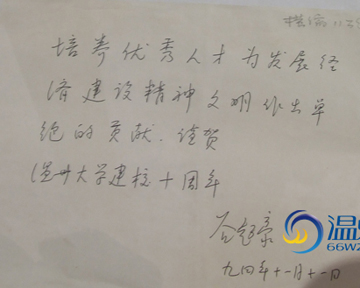 培养优秀人才为发展经
济建设精神文明作出卓
绝的贡献.谨贺
温州大学建校十周年
谷超豪
九四年十一月十一日
温
66WZ